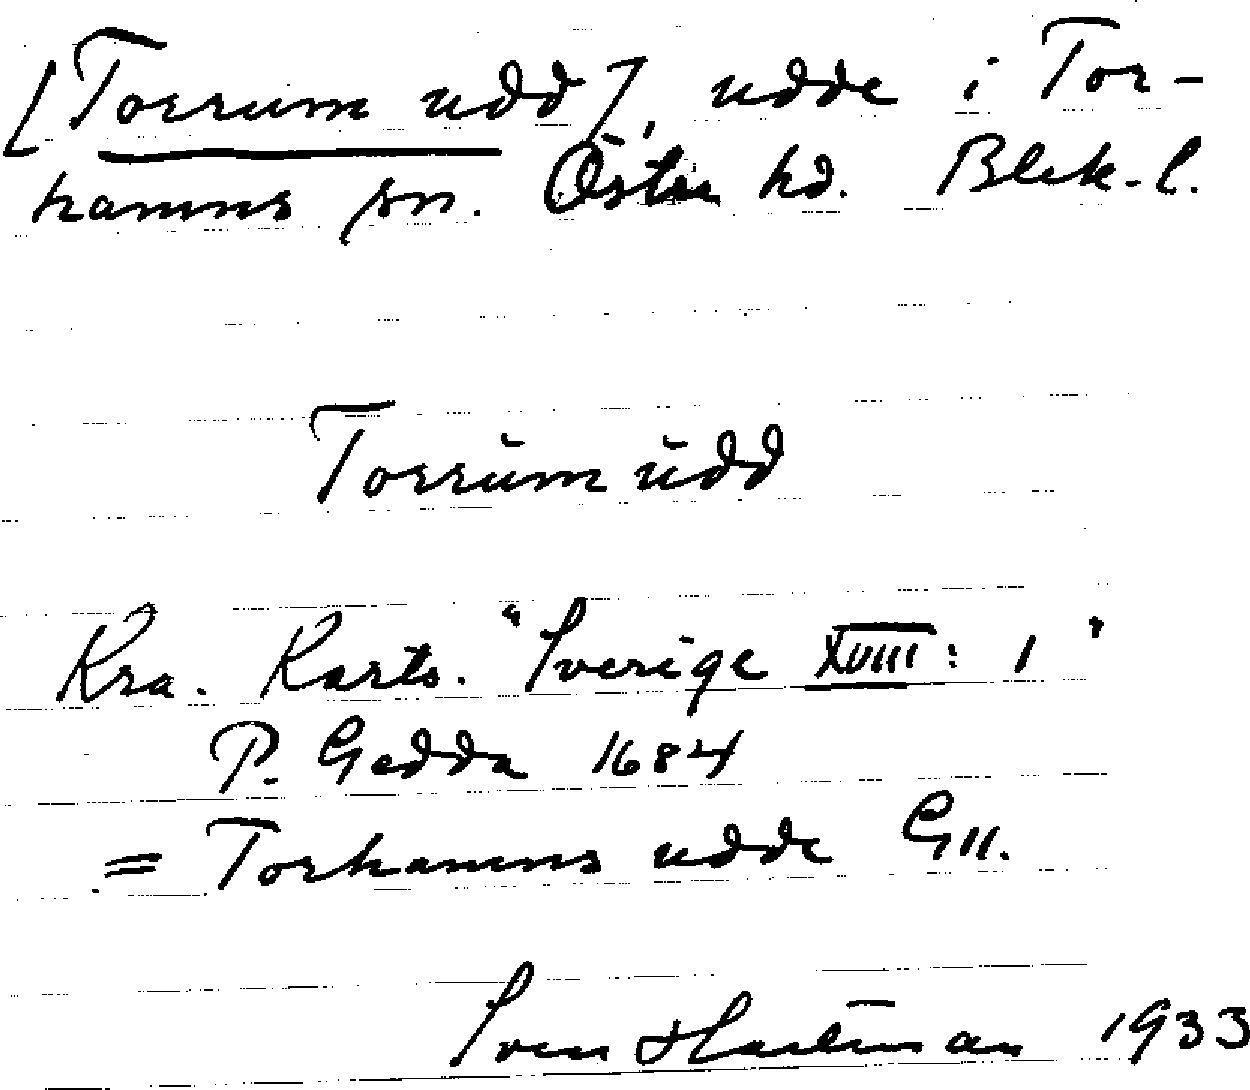 [Torrum udd], udde i Tor-
hamns sn. Östra hd. Blek. l.
Torrŭm ŭdd
Kra. Kartv. "Sverige XVIII: 1"
P. Gedda 1684
= Torhamns udde G11.
Sven Hartman 1933